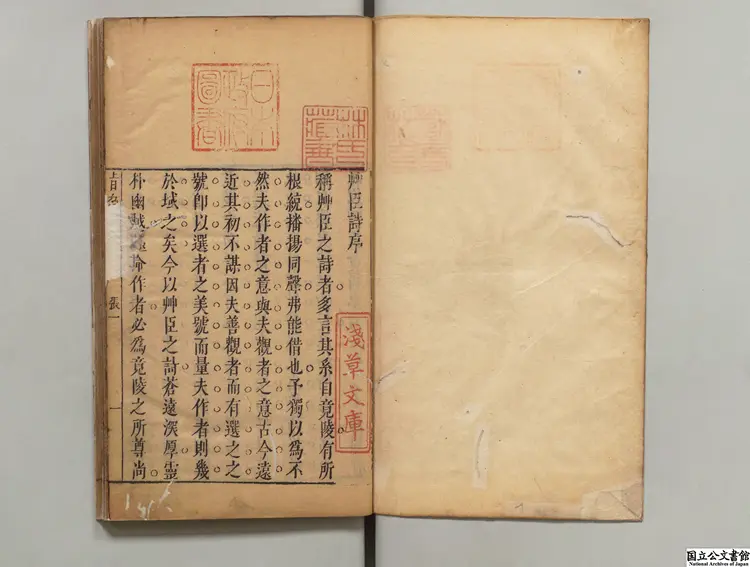 艸臣詩序
稱艸臣之詩者多言其系自竟陵有所
根統播揚同聲弗能借也予獨以爲不
然夫作者之意與夫觀者之意古今遠
近其初不謀因夫善觀者而有選之之
號卽以選者之美號而量夫作者則幾
於域之矣今以艸臣之詩蒼遠深厚靈
朴幽 作者必爲竟陵之所尊尚
張一
一
日本
政府
圖書
淺草文庫
国立公文書館
National Archives of Japan